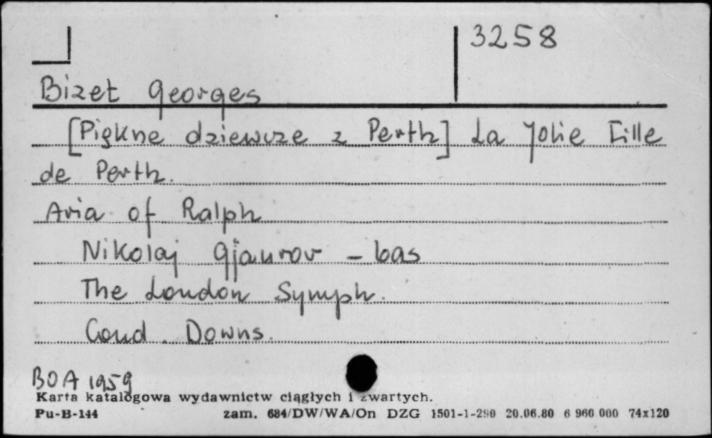 3258
Bizet Georges
[Piękne dziewcze z Perth] La Jolie Fille
de Perth.
Aria of Ralph
Nikolaj Gjaurov - bas
The London Symph.
Cond. Downs.
BOA 1959
Karta katalogowa wydawnictw ciągłych i zwartych.
Pu-B-144 zam. 684/DW/WA/On DZG 1501-1-280 20.06.80 6 960 000 74x120